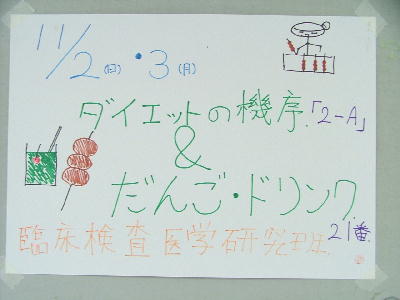 11/2(日)・3(月)
ダイエットの機序.「2-A」
&
だんご・ドリンク
21番
臨床検査医学研究班